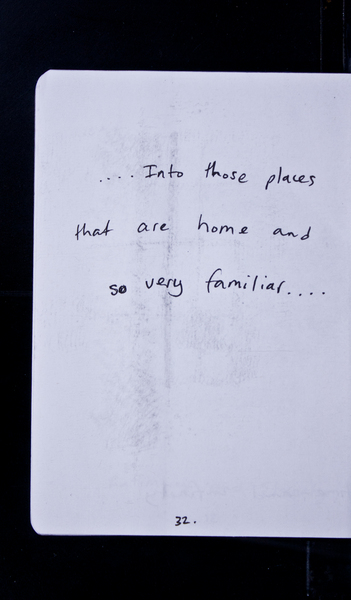 ....Into those places
that are home and
so very familiar....
32.